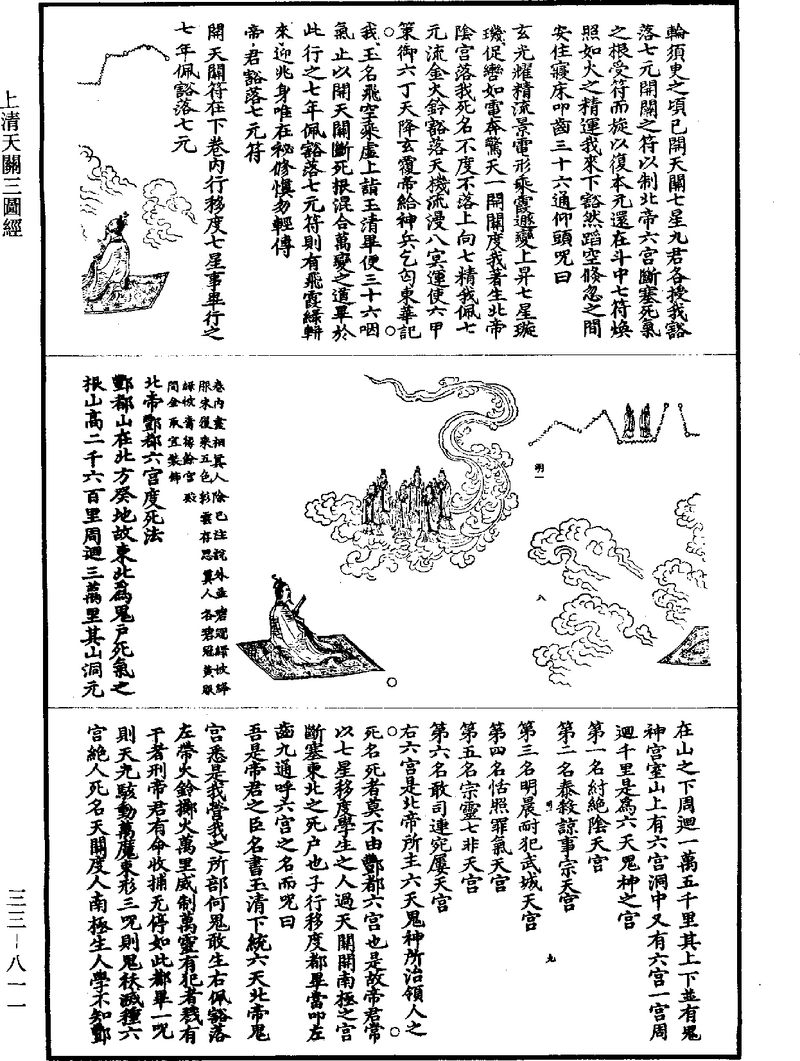 上清天關三圖經
輪須臾之頃已開天關七星九君各授我豁
落七元開關之符以制北帝六宮斷塞死氣
之根受符而旋以復本元還在斗中七符煥
照如火之精運我來下豁然蹈空倏忽之間
安住寢床叩齒三十六通仰頭呪曰
玄光耀精流景電形乘雲遞變上昇七星璇
璣促轡如電奔驚天一開關度我著生北帝
陰宮落我死名不度不落上向七精我佩七
元流金火鈴豁落天機流漫八冥運使六甲
策御六丁天降玄覆帝給神兵乞匃東華記
我玉名飛空乘虛上詣玉清畢便三十六咽
氣止以開天關斷死根混合萬變之道畢於
此行之七年佩豁落七元符則有飛霞綠軿
來迎兆身唯在秘修慎勿輕傳
帝君豁落七元符
開天關符在下卷內行移度七星事畢行之
七年佩豁落七元
明一
八
卷內畫相真人除已注說外並碧冠緋帔絳
服朱履乘五色彩雲存思真人各碧冠黃服
緑帔青褥餘宮殿
間金取宜裝飾
北帝酆都六宮度死法
酆都山在北方癸地故東北為鬼戶死氣之
根山高二千六百里周迴三萬里其山洞元
在山之下周迴一萬五千里其上下並有鬼
神宮室山上有六宮洞中又有六宮一宮周
迴千里是為六天鬼神之宮
第一名紂絕陰天宮
第二名泰殺諒事宗天宮
第三名明晨耐犯武城天宮
第四名恬照罪氣天宮
第五名宗靈七非天宮
第六名敢司連宛屢天宮
右六宮是北帝所主六天鬼神所治領人之
死名死者莫不由酆都六宮也是故帝君常
以七星移度學生之人過天關開南極之宮
斷塞東北之死户也子行移度都畢當叩左
齒九通呼六宮之名而呪曰
吾是帝君之臣名書玉清下統六天北帝鬼
宮悉是我營我之所部何鬼敢生右佩豁落
左帶火鈴擲火萬里威制萬靈有犯者戮有
干者刑帝君有命收捕无停如此都畢一呪
則天光駭動萬魔束形三呪則鬼袄滅種六
宮絕人死名天關度人南極生人學不知酆
明
九
三三－八一一